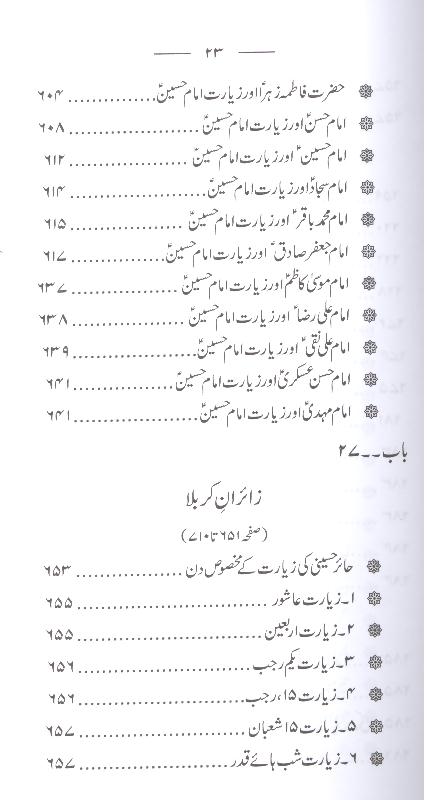 ۲۳
حضرت فاطمہ زہراؑ اور زیارت امام حسینؑ ............... ۶۰۴
امام حسنؑ اور زیارت امام حسینؑ ...................... ۶۰۸
امام حسینؑ اور زیارت امام حسینؑ ................... ۶۱۲
امام سجادؑ اور زیارت امام حسینؑ ..................... ۶۱۴
امام محمد باقرؑ اور زیارت امام حسینؑ .................. ۶۱۵
امام جعفر صادقؑ اور زیارت امام حسینؑ ............... ۶۱۷
امام موسیٰ کاظمؑ اور زیارت امام حسینؑ ................. ۶۳۷
امام علی رضاؑ اور زیارت امام حسینؑ .................. ۶۳۸
امام علی نقیؑ اور زیارت امام حسینؑ .................... ۶۳۹
امام حسن عسکریؑ اور زیارت امام حسینؑ ................ ۶۴۱
امام مہدیؑ اور زیارت امام حسینؑ ..................... ۶۴۱
باب ۔۔ ۲۷
زائرانِ کربلا
(صفحہ ۶۵۱ تا ۷۱۰)
حائر حسینی کی زیارت کے مخصوص دن .................. ۶۵۳
۱۔ زیارت عاشور ............................ ۶۵۵
۲۔ زیارت اربعین ............................ ۶۵۵
۳۔ زیارت یکم رجب ............................ ۶۵۶
۴۔ زیارت ۱۵، رجب ............................ ۶۵۶
۵۔ زیارت ۱۵ شعبان ............................ ۶۵۷
۶۔ زیارت شب ہائے قدر ......................... ۶۵۷